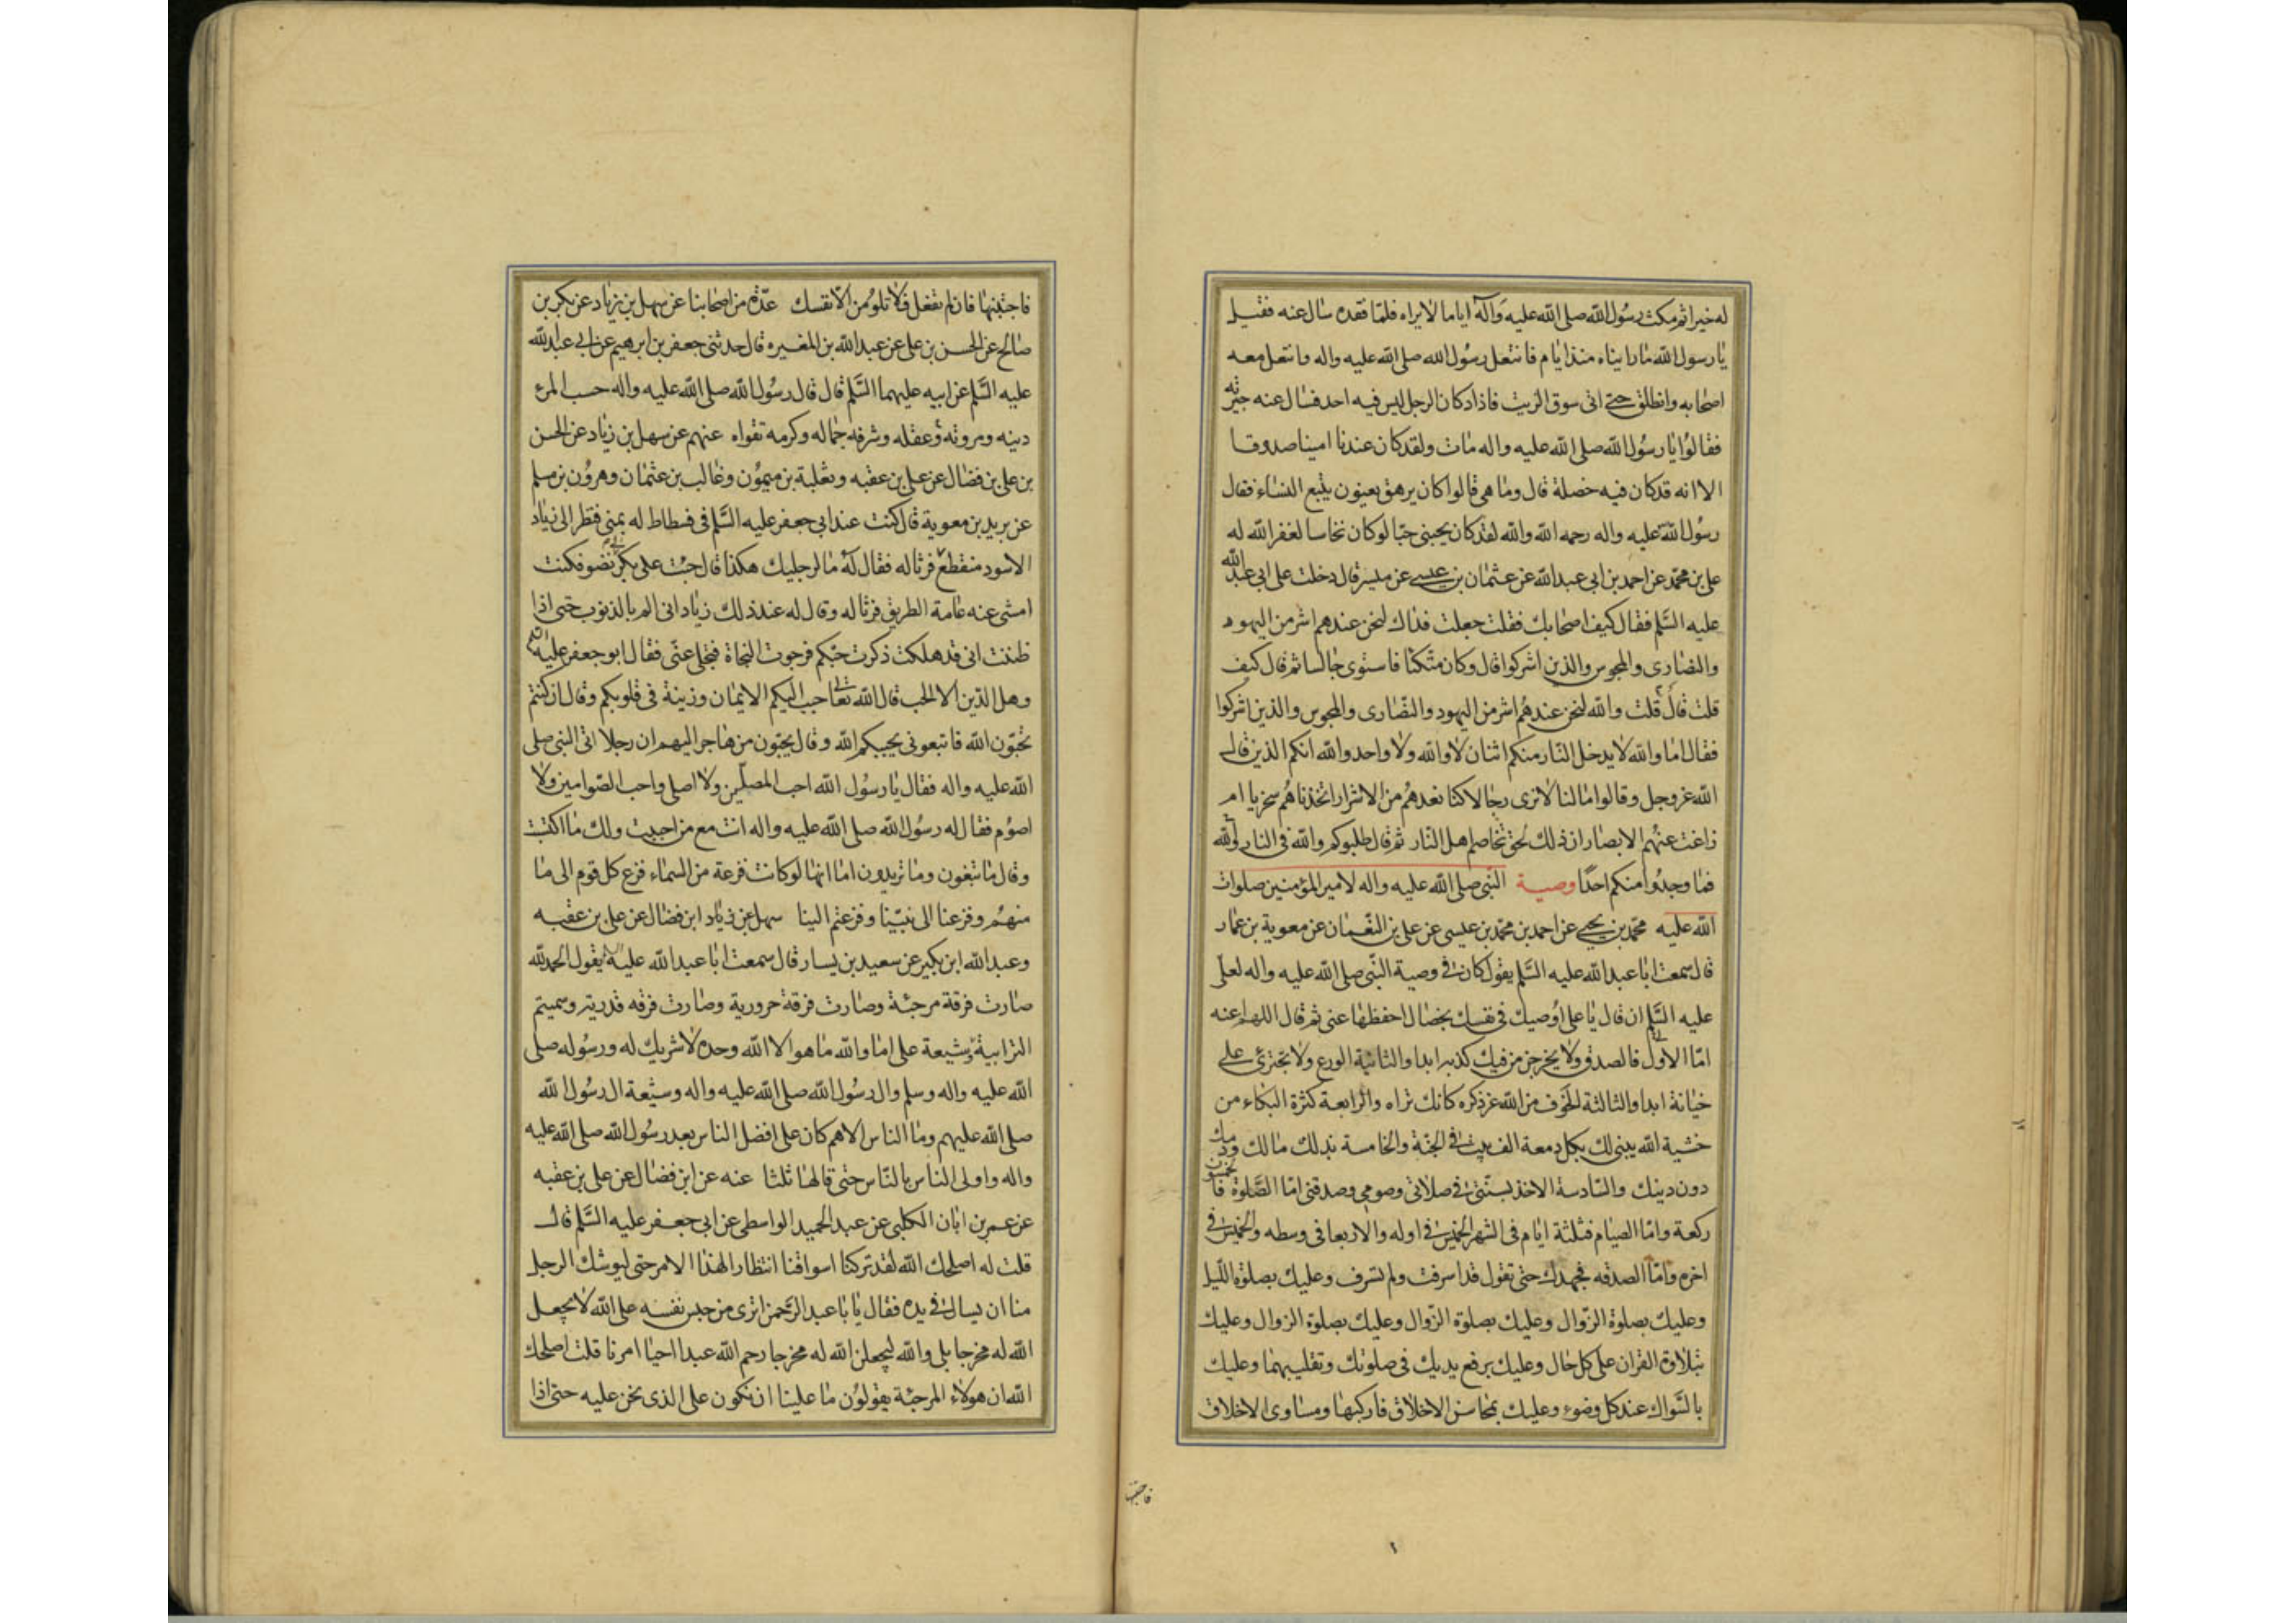 له خيرا ثم مكث رسول الله صلى الله عليه وآله اياما لا يراه فلما فقده سال عنه فقيل
يا رسول الله ما رايناه منذ ايام فانتعل رسول الله صلى الله عليه واله وانتعل معه
اصحابه وانطلق حتى اتى سوق الزيت فاذا دكان الرجل ليس فيه احد فسال عنه جيرته
فقالوا يا رسول الله صلى الله عليه واله مات ولقد كان عندنا امينا صدوقا
الا انه قد كان فيه خصلة قال وما هى قالوا كان يرهق يعنون يتبع النساء فقال
رسول الله عليه واله رحمه الله والله لقد كان يحبنى حبا لو كان نخاسا لغفر الله له
على بن محمد عن احمد بن ابى عبد الله عن عثمان بن عيسى عن ميسر قال دخلت على ابى عبد الله
عليه السلم فقال كيف اصحابك فقلت جعلت فداك لنحن عندهم اشر من اليهود
والنصارى والمجوس والذين اشركوا قال وكان متكئا فاستوى جالسا ثم قال كيف
قلت قال قلت والله لنحن عندهم اشر من اليهود والنصارى والمجوس والذين اشركوا
فقال اما والله لا يدخل النار منكم اثنان لا والله ولا واحد والله انكم الذين قال
الله عز وجل وقالوا ما لنا لا نرى رجالا كنا نعدهم من الاشرار اتخذناهم سخريا ام
زاغت عنهم الابصار ان ذلك لحق تخاصم اهل النار ثم قال طلبوكم والله فى النار والله
فما وجدوا منكم احدا وصية النبى صلى الله عليه واله لامير المؤمنين صلوات
الله عليه محمد بن يحيى عن احمد بن محمد بن عيسى عن على بن النعمان عن معوية بن عمار
قال سمعت ابا عبد الله عليه السلم يقول كان فى وصية النبى صلى الله عليه واله لعلى
عليه السلم ان قال يا على اوصيك فى نفسك بخصال احفظها عنى ثم قال اللهم اعنه
اما الاولى فالصدق ولا يخرجن من فيك كذبة ابدا والثانية الورع ولا تجترئ على
خيانة ابدا والثالثة الخوف من الله عز ذكره كانك تراه والرابعة كثرة البكاء من
خشية الله يبنى لك بكل دمعة الف بيت فى الجنة والخامسة بذلك مالك ودمك
دون دينك والسادسة الاخذ بسنتى فى صلاتى وصومى وصدقتى اما الصلوة فالخمسون
ركعة واما الصيام فثلثة ايام فى الشهر الخميس فى اوله والاربعا فى وسطه والخميس فى
اخره واما الصدقه فجهدك حتى تقول قد اسرفت ولم تسرف وعليك بصلوة الليل
وعليك بصلوة الزوال وعليك بصلوة الزوال وعليك بصلوة الزوال وعليك
بتلاوة القران على كل حال وعليك برفع يديك فى صلوتك وتقليبهما وعليك
بالسواك عند كل وضوء وعليك بمحاسن الاخلاق فاركبها ومساوى الاخلاق
فاجتنبها فان لم تفعل فلا تلومن الا نفسك عدة من اصحابنا عن سهل بن زياد عن بكر بن
صالح عن الحسن بن على عن عبد الله بن المغيره قال حدثنى جعفر بن ابرهيم عن ابى عبد الله
عليه السلم عن ابيه عليهما السلم قال قال رسول الله صلى الله عليه واله حسب المرء
دينه ومروته وعقله وشرفه جماله وكرمه تقواه عنهم عن سهل بن زياد عن الحسن
بن على بن فضال عن على بن عقبه وثعلبة بن ميمون وغالب بن عثمان وهرون بن مسلم
عن بريد بن معوية قال كنت عند ابى جعفر عليه السلم فى فسطاط له بمنى فنظر الى زياد
الاسود منقطع فرثا له فقال له ما لرجليك هكذا قال جئت على بكر لى نضو فكنت
امشى عنه عامة الطريق فرثا له وقال له عند ذلك زياد انى الم بالذنوب حتى اذا
ظننت انى قد هلكت ذكرت حبكم فرجوت النجاة فتجلى عنى فقال ابو جعفر عليه السلم
وهل الدين الا الحب قال الله تعالى حبب اليكم الايمان وزينة فى قلوبكم وقال ان كنتم
تحبون الله فاتبعونى يحببكم الله وقال يحبون من هاجر اليهم ان رجلا اتى النبى صلى
الله عليه واله فقال يا رسول الله احب المصلين ولا اصلى واحب الصوامين ولا
اصوم فقال له رسول الله صلى الله عليه واله انت مع من احببت ولك ما اكتسبت
وقال ما تبغون وما تريدون اما انها لو كانت فزعة من السماء فزع كل قوم الى ما
منهم وفزعنا الى نبينا وفزعتم الينا سهل عن زياد ابن فضال عن على بن عقبه
وعبد الله ابن بكير عن سعيد بن يسار قال سمعت ابا عبد الله عليه يقول الحمد لله
صارت فرقة مرجئة وصارت فرقة حرورية وصارت فرقه قدرية وسميتم
الترابية وشيعة على اما والله ما هو الا الله وحده لا شريك له ورسوله صلى
الله عليه واله وسلم وال رسول الله صلى الله عليه واله وشيعة ال رسول الله
صلى الله عليهم وما الناس الا هم كان على افضل الناس بعد رسول الله صلى الله عليه
واله واولى الناس بالناس حتى قالها ثلثا عنه عن ابن فضال عن على بن عقبه
عن عمر بن ابان الكلبى عن عبد الحميد الواسطى عن ابى جعفر عليه السلم قال
قلت له اصلحك الله لقد تركنا اسواقنا انتظارا لهذا الامر حتى ليوشك الرجل
منا ان يسال فى يده فقال يا با عبد الرحمن اترى من حبس نفسه على الله لا يجعل
الله له مخرجا بلى والله ليجعلن الله له مخرجا رحم الله عبدا احيا امرنا قلت اصلحك
الله ان هولاء المرجئة يقولون ما علينا ان نكون على الذى نحن عليه حتى اذا
فاجتنبها